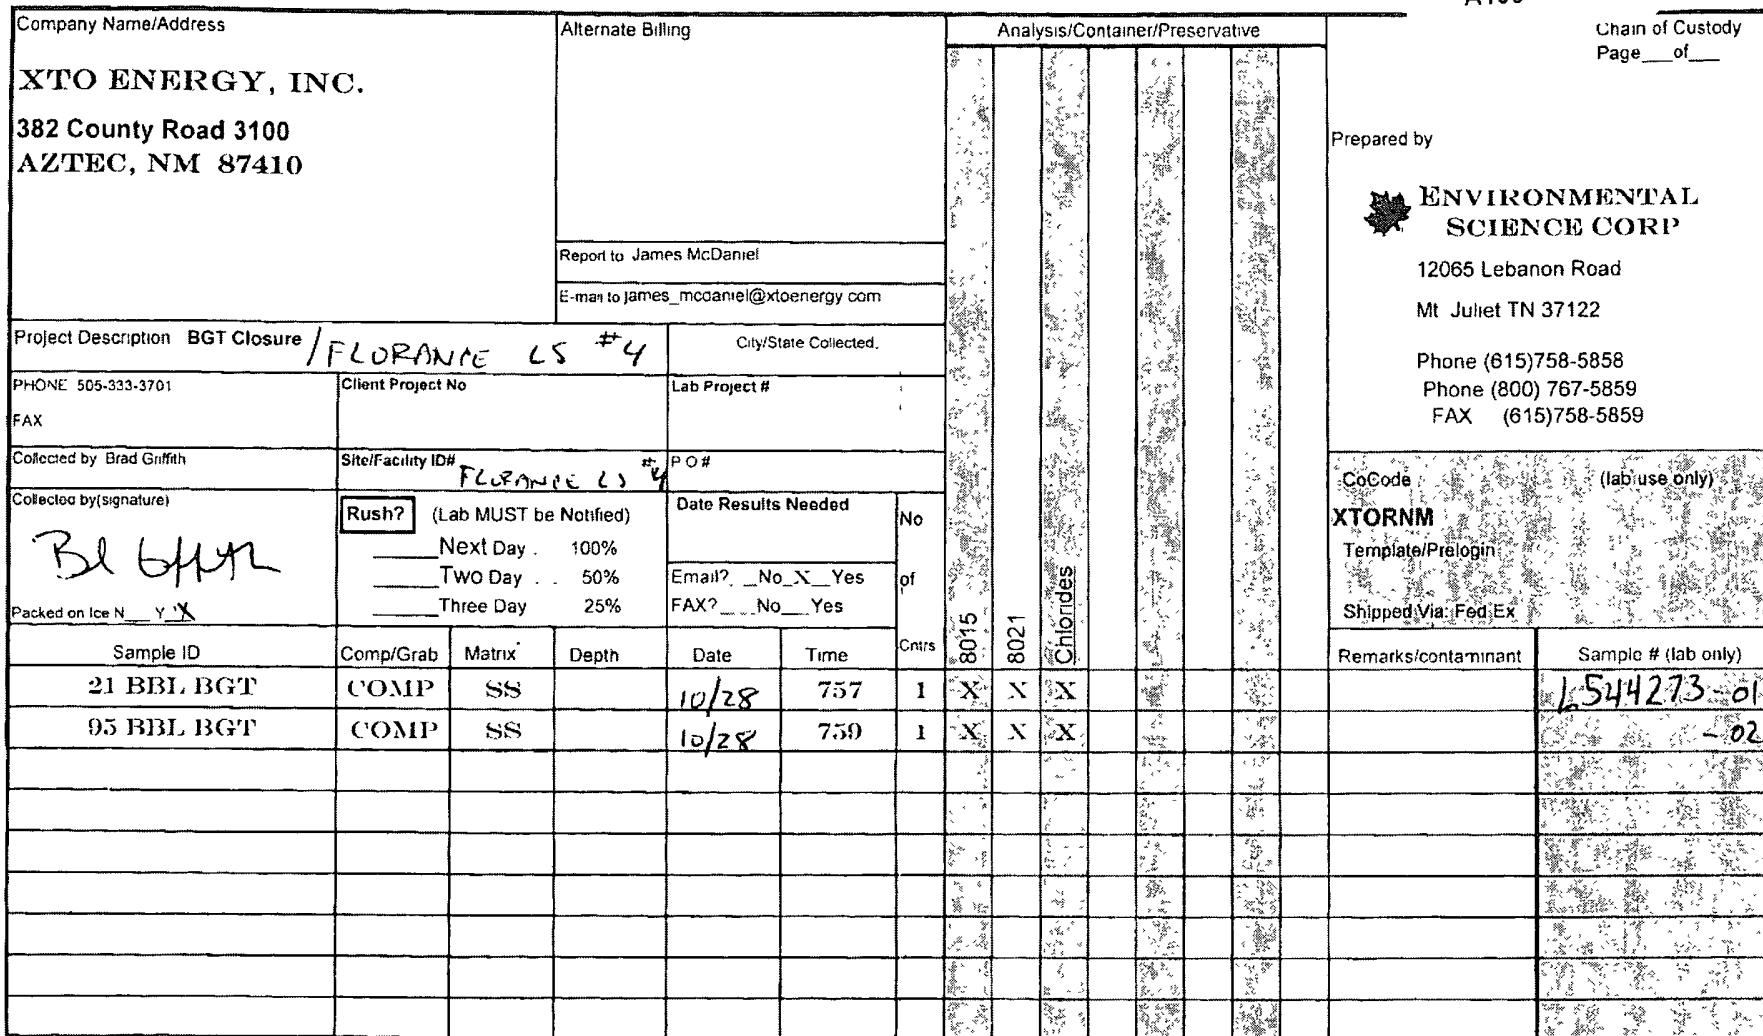 Chain of Custody
Page___of___
Company Name/Address
XTO ENERGY, INC.
382 County Road 3100
AZTEC, NM 87410
Alternate Billing
Report to James McDaniel
E-mail to james_mcdaniel@xtoenergy com
Analysis/Container/Preservative
Prepared by
ENVIRONMENTAL
SCIENCE CORP
12065 Lebanon Road
Mt Juliet TN 37122
Phone (615)758-5858
Phone (800) 767-5859
FAX (615)758-5859
Project Description BGT Closure / FLORANCE LS #4
City/State Collected.
PHONE 505-333-3701
FAX
Client Project No
Lab Project #
Collected by Brad Griffith
Site/Facility ID# FLORANCE LS #4
P O #
Collected by(signature)
Packed on Ice N___ Y X
Rush? (Lab MUST be Notified)
_____Next Day . 100%
_____Two Day . . 50%
_____Three Day 25%
Date Results Needed
Email? __No_X__Yes
FAX?____No___Yes
No
of
Cntrs
8015
8021
Chlorides
CoCode (lab use only)
XTORNM
Template/Prelogin
Shipped Via: Fed Ex
Sample ID Comp/Grab Matrix Depth Date Time Remarks/contaminant Sample # (lab only)
21 BBL BGT COMP SS 10/28 757 1 X X X L544273-01
95 BBL BGT COMP SS 10/28 759 1 X X X -02